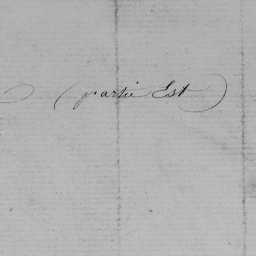 (partie Est)